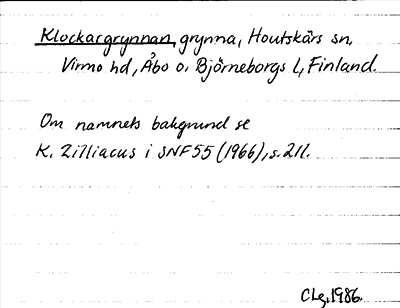 Klockargrynnan, grynna, Houtskärs sn,
Virmo hd, Åbo o. Björneborgs l, Finland.
Om namnets bakgrund se
K. Zilliacus i SNF 55 (1966), s. 211.
CLg, 1986.